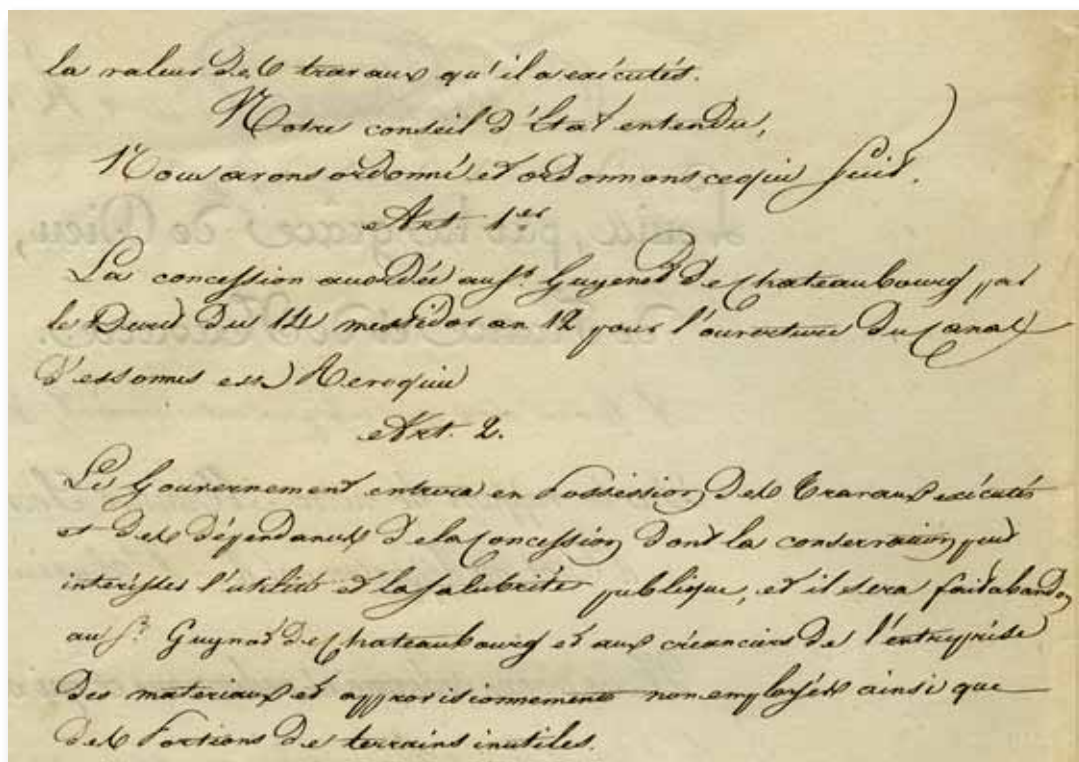 la valeur des travaux qu'il a exécutés.
Notre conseil d'État entendu,
Nous avons ordonné et ordonnons ce qui suit.
Art. 1er
La concession accordée au Sr. Guyenot de Chateaubourg par
le Decret du 14 messidor an 12 pour l'ouverture du Canal
d'essonnes est Revoquée
Art. 2.
Le Gouvernement entrera en Possession des Travaux exécutés
et des dépendances de la Concession dont la conservation peut
intéresser l'utilité et la salubrité publique, et il sera fait abandon
au Sr. Guynot de Chateaubourg et aux créanciers de l'entreprise
des materiaux et approvisionnements non employés ainsi que
des Portions de terrains inutiles.